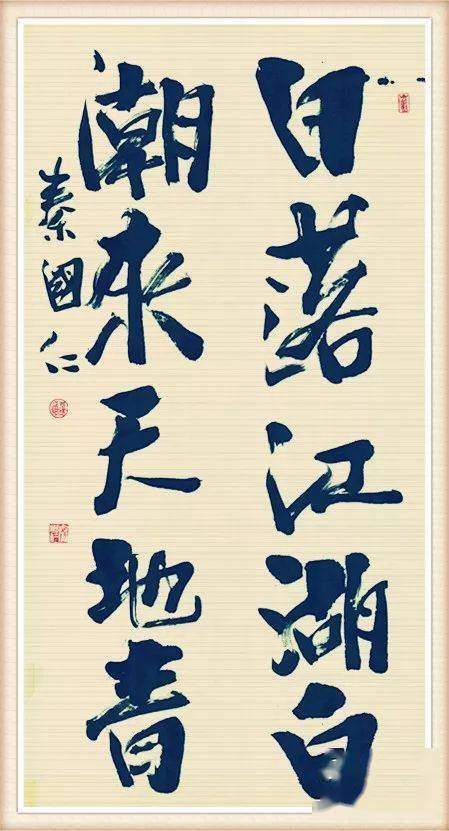 日落江湖白
潮来天地青
秦國仁